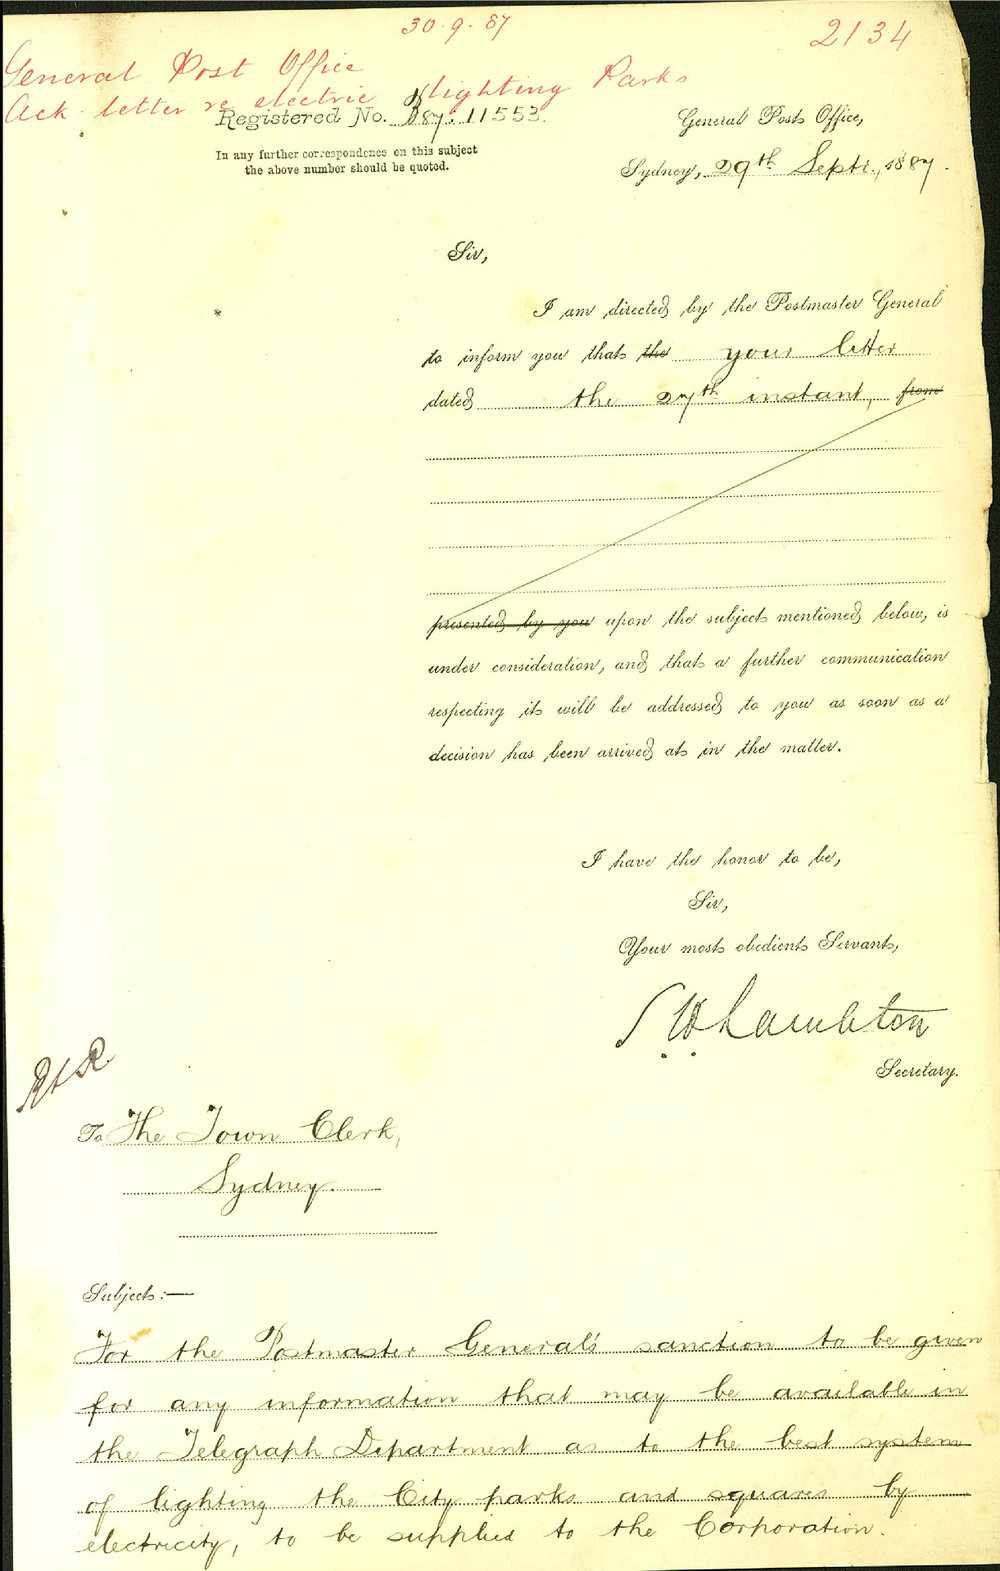 30.9.87
2134
General Post Office
Ack. letter re electric lighting Parks
Registered No. B87.11553.
General Post Office,
In any further correspondence on this subject
the above number should be quoted.
Sydney, 29th Septr., 1887.
Sir,
I am directed by the Postmaster General
to inform you that the your letter
dated the 27th instant, from
presented by you upon the subject mentioned below, is
under consideration, and that a further communication
respecting it will be addressed to you as soon as a
decision has been arrived at in the matter.
I have the honor to be,
Sir,
Your most obedient Servant,
S W Lambton
Secretary.
To The Town Clerk,
Sydney.
Subject:—
For the Postmaster General's sanction to be given
for any information that may be available in
the Telegraph Department as to the best system
of lighting the City parks and squares by
electricity, to be supplied to the Corporation.